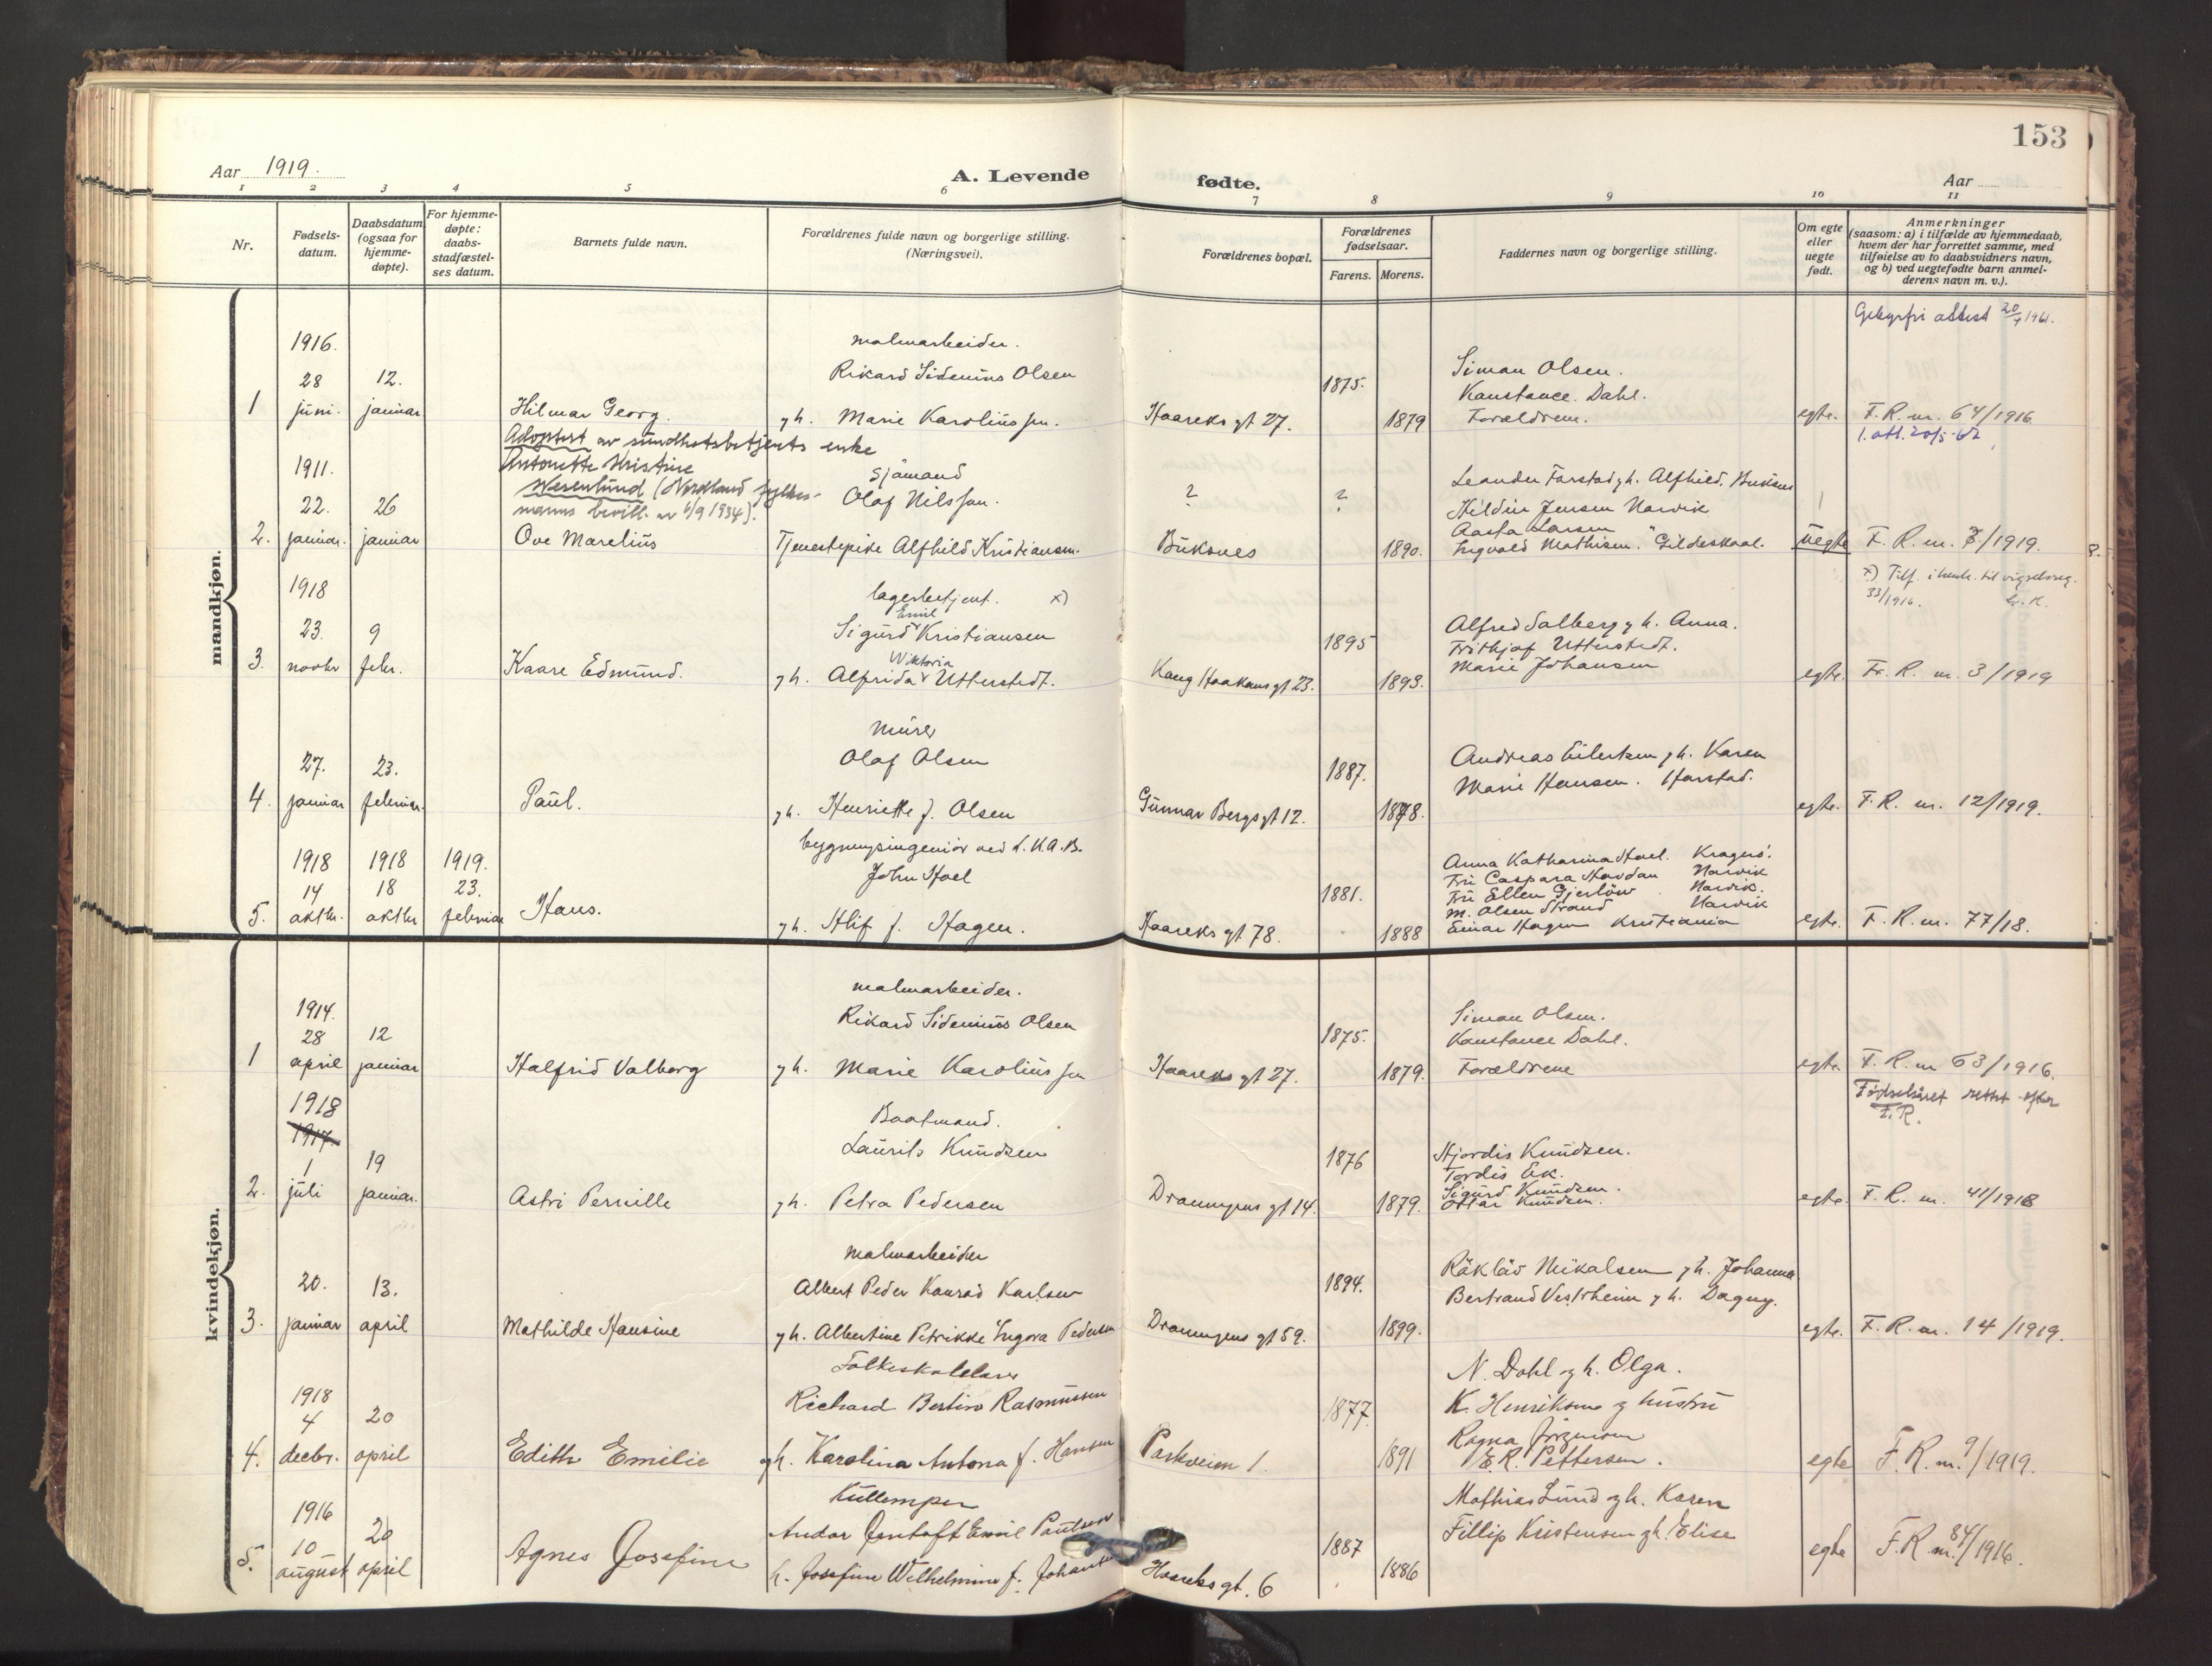 153
Aar 1919.
A. Levende
fødte.
Aar
1 2 3 4 5 6 7 8 9 10 11
Nr.
Fødsels-
datum.
Daabsdatum
(ogsaa for
hjemme-
døpte).
For hjemme-
døpte:
daabs-
stadfæstel-
ses datum.
Barnets fulde navn.
Forældrenes fulde navn og borgerlige stilling.
(Næringsvei).
Forældrenes bopæl.
Forældrenes
fødselsaar.
Farens. Morens.
Faddernes navn og borgerlige stilling.
Om egte
eller
uegte
født.
Anmerkninger
(saasom: a) i tilfælde av hjemmedaab,
hvem der har forrettet samme, med
tilføielse av to daabsvidners navn,
og b) ved uegtefødte barn anmel-
derens navn m. v.).
mandkjøn.
Gebyrfri attest 20/4 1961.
1916. malmarbeider.
28 12. Rikard Sidenius Olsen 1875. Simon Olsen.
Konstance Dahl.
1 juni. januar Hilmar Georg. gh. Marie Karoliussen. Haareks gt 27. 1879 Forældrene. egte. F. R. nr. 64/1916
1. att. 20/5-62
Adoptert av sundhetsbetjents enke
Antonette Kristine
Wesenlund (Nordland fylkes-
manns bevill. av 6/9 1934).
1911. Sjømand
22. 26 Olaf Nilssen. ? ? Leander Farstad gh. Alfhild, Buksnes
Hildur Jensen Narvik
Aasta Larsen "
2. januar. januar Ove Marelius Tjenestepike Alfhild Kristiansen. Buksnes 1890. Ingvald Mathisen. Gildeskaal. uegte F. R. nr. 3/1919. 8.
x) Tilf. i henh. til vigselsreg.
33/1916.
1918 lagerbetjent. x)
23. 9 Sigurd Emil Kristiansen 1895 Alfred Salberg gh. Anna.
Frithjof Utterstedt.
Marie Johansen
3. novbr febr. Kaare Edmund. gh. Alfrida Wiktoria Utterstedt. Kong Haakons gt 23. 1893. egte. F. R. nr. 3/1919
murer
27. 23. Olaf Olsen 1887. Andreas Eilertsen gh. Karen
Marie Hansen. Harstad.
4. januar februar. Paul. gh. Henriette f. Olsen Gunnar Bergs gt 12. 1878. egte. F. R. nr. 12/1919.
1918 1918 1919. bygningsingeniør ved L.K.A.B.
14 18 23. John Hoel 1881. Anna Katharina Hoel. Kragerø.
Fru Caspara Hovdan Narvik
Fru Ellen Gjerløw. Narvik.
M. Olsen Strand Narvik
5. oktbr. oktbr februar Hans. gh. Alif f. Hagen. Haareks gt 78. 1888 Einar Hagen Kristiania egte. F. R. nr. 77/18.
kvindekjøn.
1914. malmarbeider.
28 12 Rikard Sidenius Olsen 1875. Simon Olsen.
Konstance Dahl.
1 april januar Halfrid Valborg gh. Marie Karoliussen Haareks gt 27. 1879. Forældrene egte F. R. nr 63/1916.
Fødselsåret rettet efter
F. R.
1918
1917. Baatmand.
1 19 Laurits Knudsen 1876 Hjordis Knudsen.
Tordis Ek.
Sigurd Knudsen.
2. juli januar. Astri Pernille gh. Petra Pedersen Dronningens gt 14. 1879. Ottar Knudsen. egte. F. R. nr. 41/1918
malmarbeider
20. 13. Albert Peder Konrad Karlsen 1894. Råkläv Mikalsen gh. Johanna
Bertrand Vestrheim gh. Dagny.
3. januar april Mathilde Hansine gh. Albertine Petrikke Ingora Pedersen Dronningens gt 59. 1899. egte. F. R. nr. 14/1919.
Folkeskolelærer
1918
4 20 Richard Bertin Rasmussen 1877. N. Dahl gh. Olga.
K. Henriksen og hustru
Ragna Jörgensen
4. decbr. april Edith Emilie gh. Karolina Antona f. Hansen Parkveien 1. 1891 E. R. Pettersen. egte F. R. nr. 9/1919.
Kullemper
1916
10 20 Andor Gentoft Emil Paulsen 1887 Mathias Lund gh. Karen
Fillip Kristensen gh. Elise
5. august april Agnes Josefine h. Josefine Wilhelmine f. Johansen Haareks gt. 6 1886 egte F. R. nr. 84/1916.